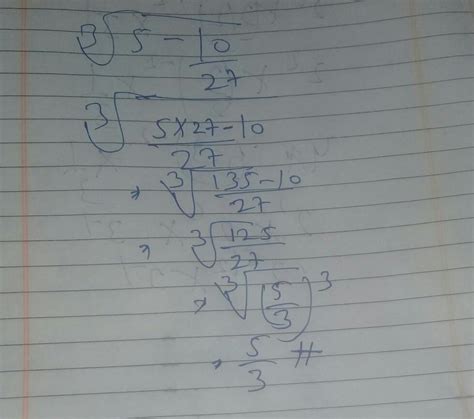 ∛(5 - 10/27)
∛((5×27-10)/27)
, ∛((135-10)/27)
, ∛(125/27)
, ∛((5/3)^3)
, 5/3 #